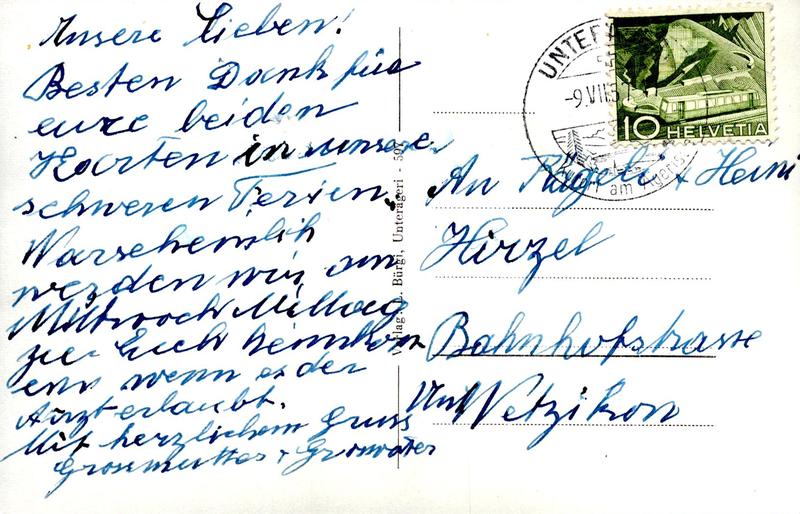 Unsere Lieben!
Besten Dank für
eure beiden
Karten in unsere
schweren Ferien.
Warscheinlich
werden wir am
Mittwoch Mittag
zu Euch heimkom
en wenn es der
Arzt erlaubt.
Mit herzlichem Gruss
Grosmutter + Grosvater
Verlag: Bürgi, Unterägeri - 507
UNTER
-9.VII.5
am Ägeris
10 HELVETIA
An Rägeli + Heini
Hirzel
Bahnhofstrasse
Unt Wetzikon